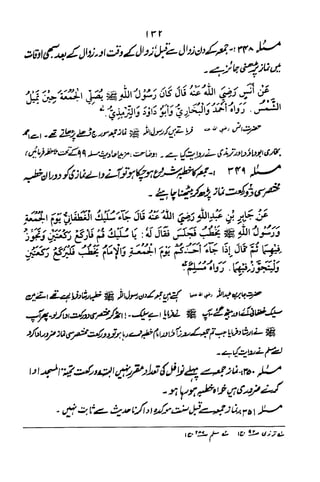 ۱۳۲
مسئلہ ۳۴۸ :- جمعہ کے دن زوال سے قبل، زوال کے وقت اور زوال کے بعد سبھی اوقات
میں نماز پڑھنی جائز ہے۔
عَنْ أَنَسٍ رَضِيَ اللهُ عَنْهُ قَالَ كَانَ رَسُولُ اللهِ ﷺ يُصَلِّي الْجُمُعَةَ حِينَ تَمِيلُ
الشَّمْسُ. رَوَاهُ أَحْمَدُ وَالْبُخَارِيُّ وَأَبُو دَاوُدَ وَالتِّرْمِذِيُّ.
حضرت انس فرماتے ہیں کہ رسول اللہ ﷺ نماز جمعہ سورج ڈھلے پڑھتے تھے۔ اسے احمد
بخاری ابو داؤد اور ترمذی نے روایت کیا ہے۔ وضاحت : مزید احادیث مسئلہ ۹۹ کے تحت ملاحظہ فرمائیں
مسئلہ ۳۴۹ :- جمعہ کا خطبہ شروع ہو چکا ہو تو آنے والے نمازی کو دوران خطبہ
مختصر سی دو رکعت نماز پڑھ کر بیٹھنا چاہیے۔
عَنْ جَابِرِ بْنِ عَبْدِاللهِ رَضِيَ اللهُ عَنْهُ قَالَ جَاءَ سُلَيْكٌ الْغَطَفَانِيُّ يَوْمَ الْجُمُعَةِ
وَرَسُولُ اللهِ ﷺ يَخْطُبُ فَجَلَسَ فَقَالَ لَهُ: يَا سُلَيْكُ قُمْ فَارْكَعْ رَكْعَتَيْنِ وَتَجَوَّزْ
فِيهِمَا ثُمَّ قَالَ إِذَا جَاءَ أَحَدُكُمْ يَوْمَ الْجُمُعَةِ وَالْإِمَامُ يَخْطُبُ فَلْيَرْكَعْ رَكْعَتَيْنِ
وَلْيَتَجَوَّزْ فِيهِمَا. رَوَاهُ مُسْلِمٌ.
حضرت جابر بن عبداللہ کہتے ہیں جمعہ کے دن رسول اللہ ﷺ خطبہ ارشاد فرما رہے تھے اتنے میں
سلیک غطفانی آئے اور بیٹھ گئے آپ ﷺ نے فرمایا اے سلیک! اٹھ کر مختصر سی دو رکعت ادا کرو، پھر آپ
ﷺ نے ارشاد فرمایا جب تم جمعہ کے روز آؤ اور امام خطبہ دے رہا ہو تو دو رکعت مختصر سی نماز ضرور ادا کرو
اسے مسلم نے روایت کیا ہے۔
مسئلہ ۳۵۰ :- نماز جمعہ سے پہلے نوافل کی تعداد مقرر نہیں البتہ دو رکعت تحیۃ المسجد ادا
کرنے ضروری ہیں خواہ خطبہ ہو رہا ہو۔
مسئلہ ۳۵۱ :- نماز جمعہ سے قبل سنت موکدہ ادا کرنا حدیث سے ثابت نہیں۔